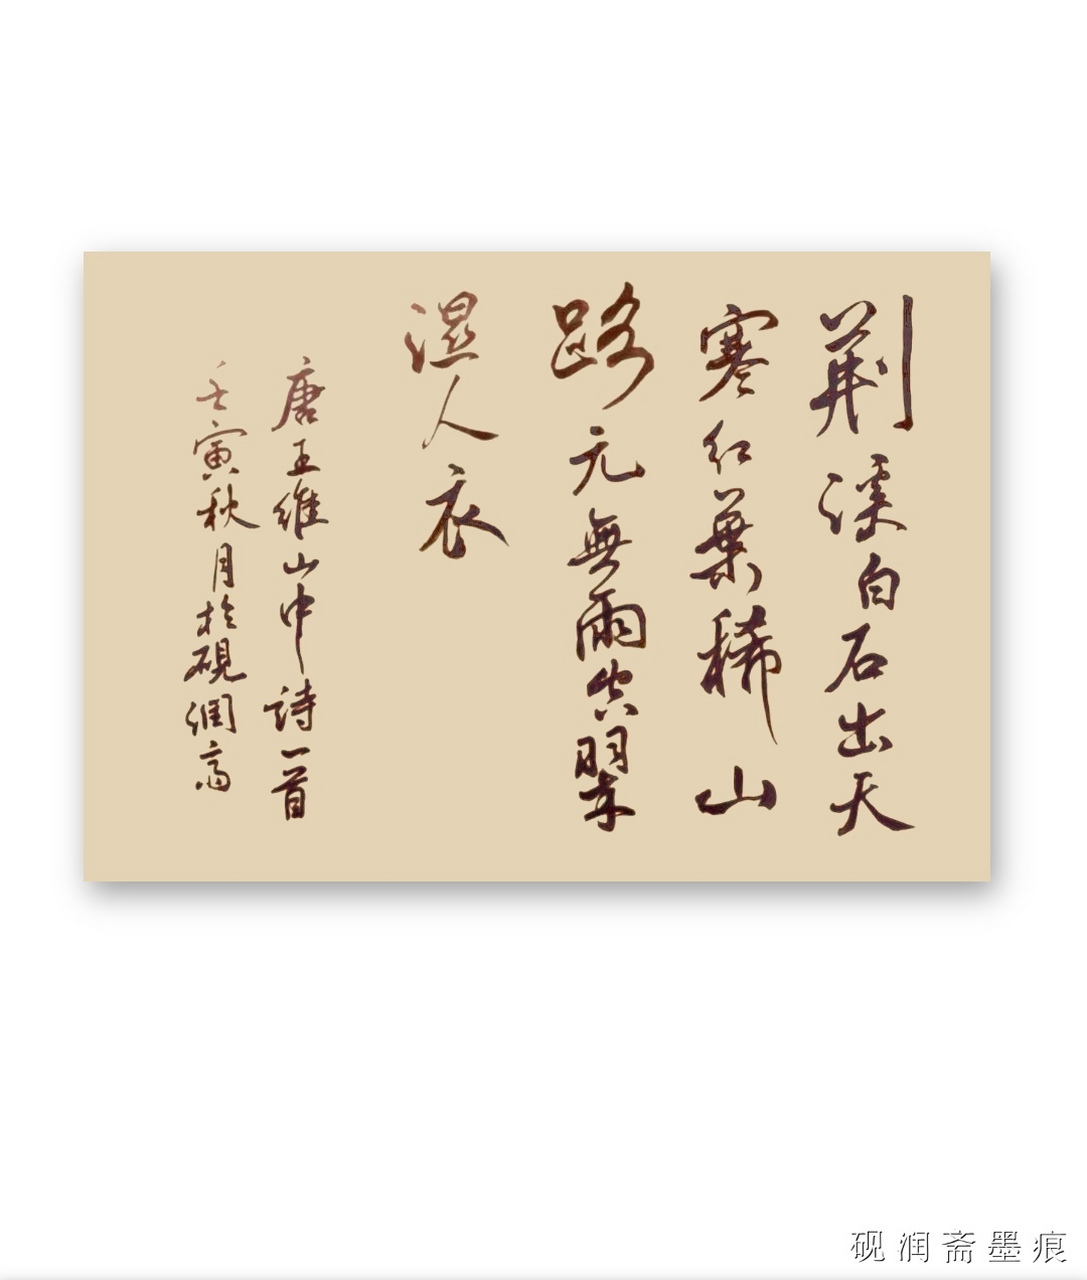 荆溪白石出天
寒红葉稀山
路元無雨空翠
濕人衣
唐王維山中詩一首
壬寅秋月於硯潤斋
砚润斋墨痕